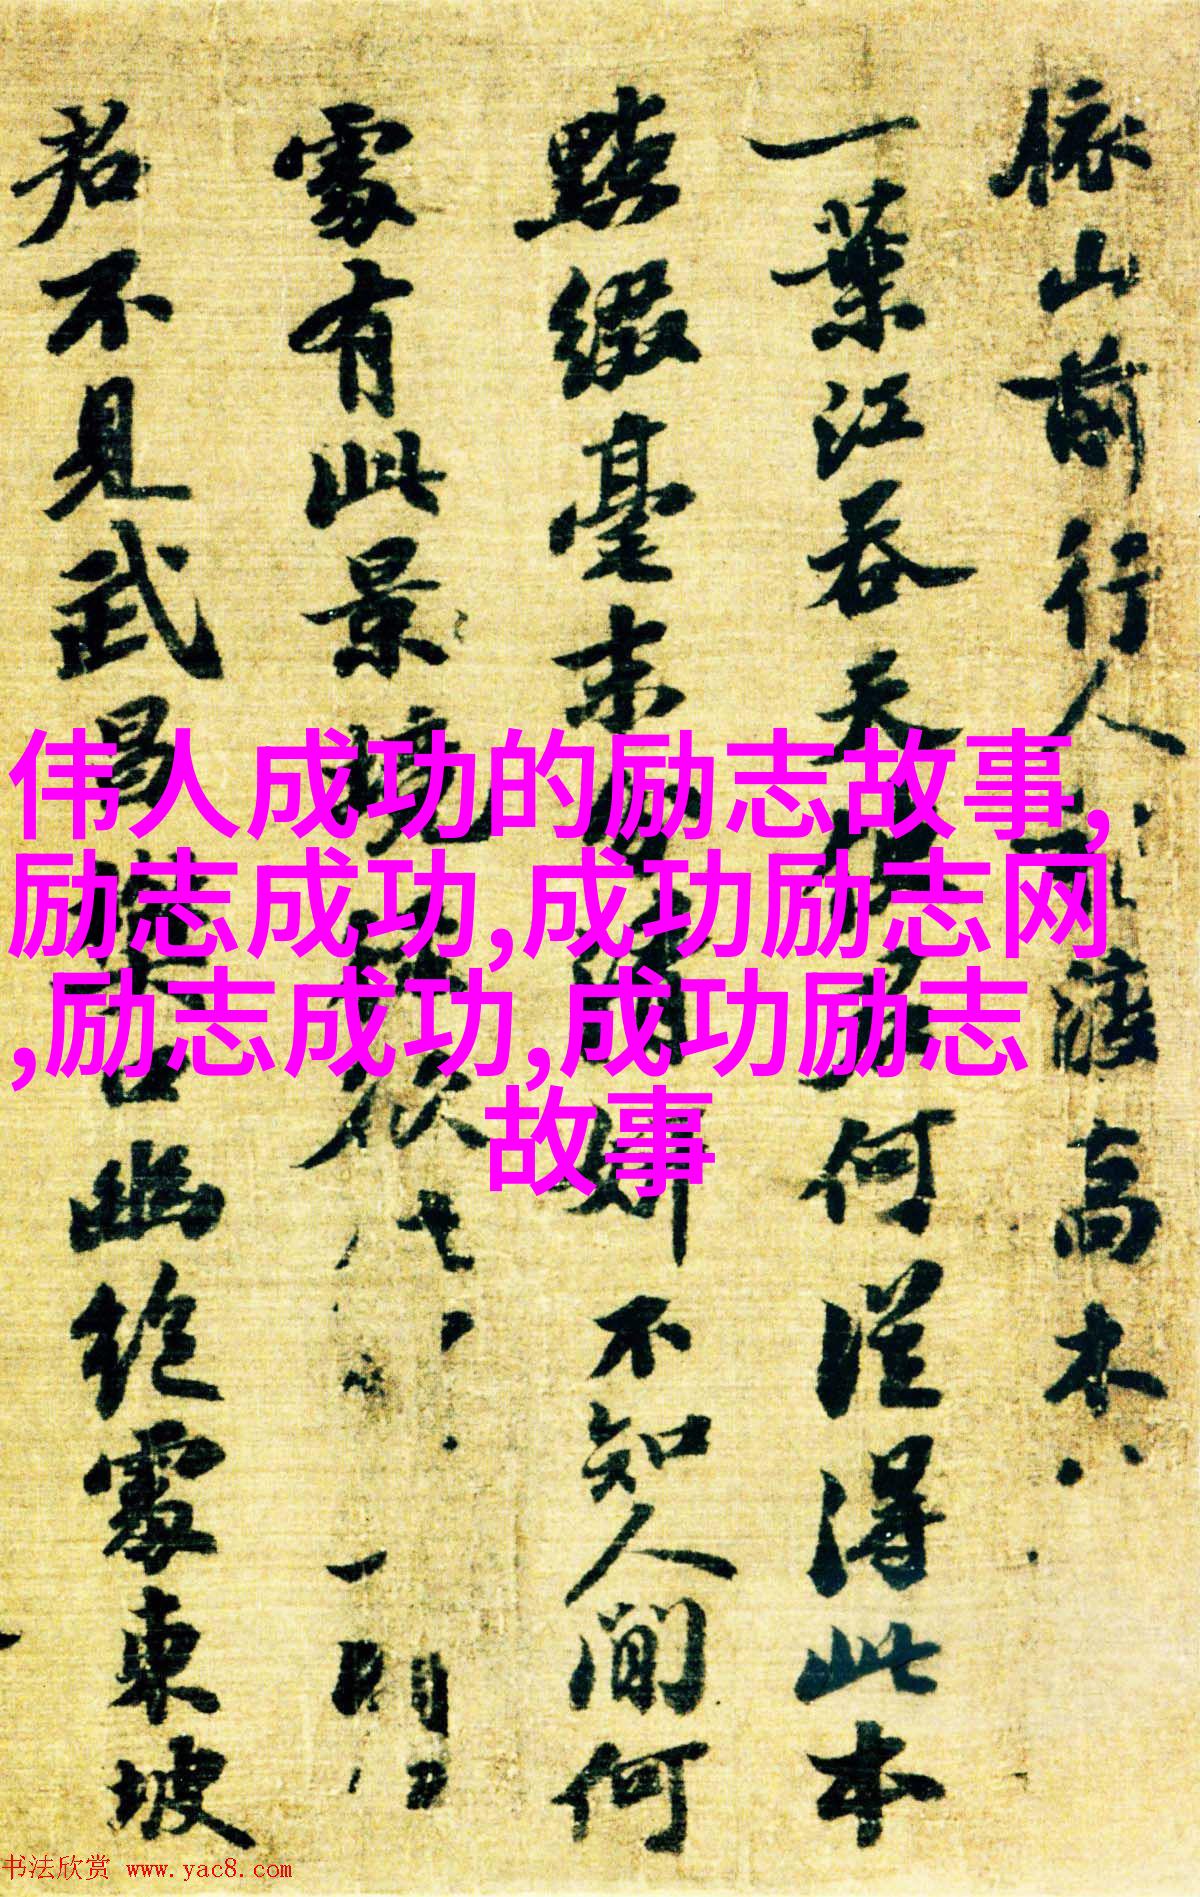 依山前行人渡高木
一葉江吞天使君何從得此本
點綴毫末分清妍不知人間何
處有此景境
君不見武昌樊口幽絕處東坡
伟人成功的励志故事,
励志成功,成功励志网
,励志成功,成功励志
故事
书法欣赏 www.yac8.com